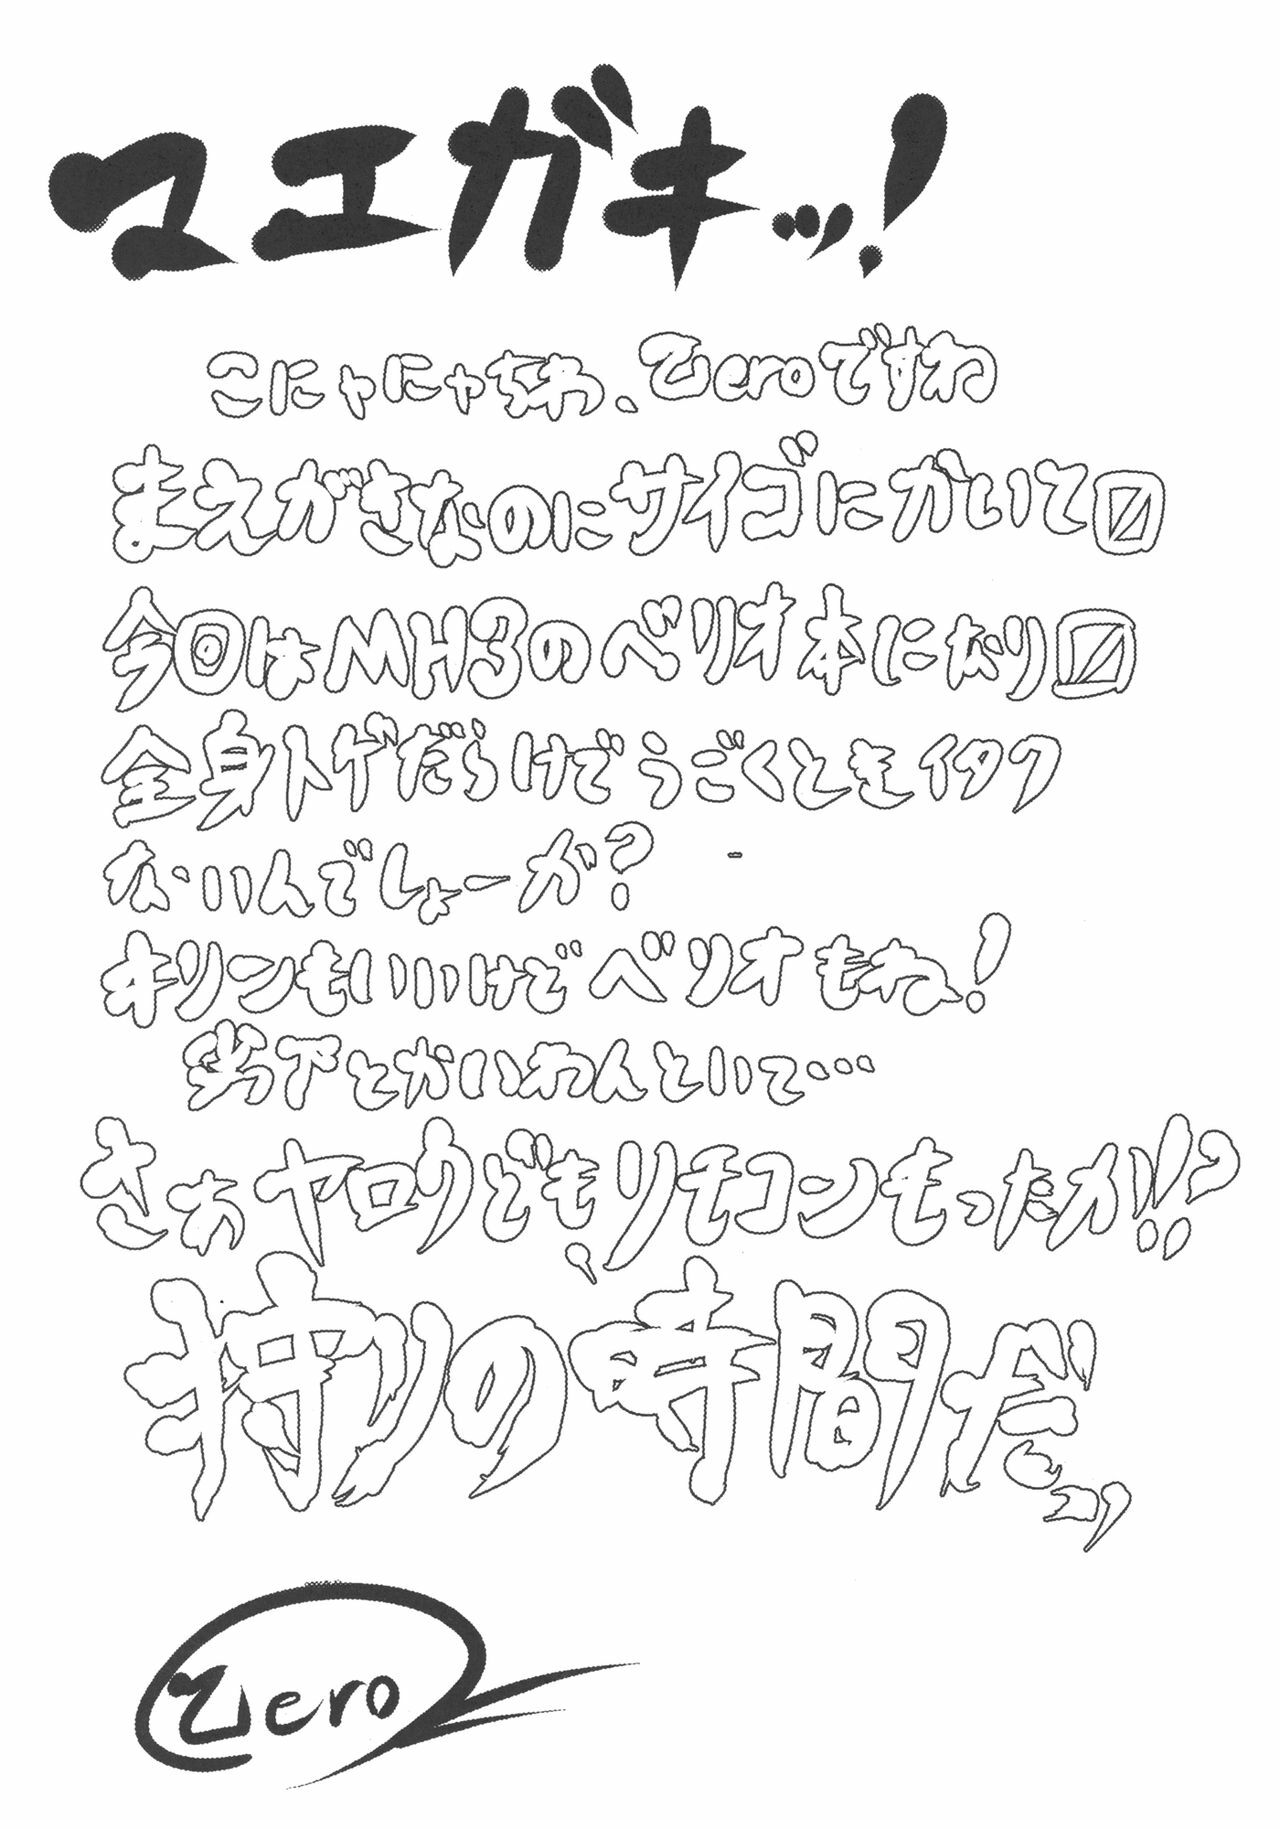 マエガキッ!
こにゃにゃちわ、Zeroですわ
まえがきなのにサイゴにかいて〼
今回はMH3のベリオ本になり〼
全身トゲだらけでうごくときイタク
ないんでしょーか?
キリンもいいけどベリオもね!
劣下とかいわんといて…
さぁヤロウども、リモコンもったか!!?
狩りの時間だっ
Zero